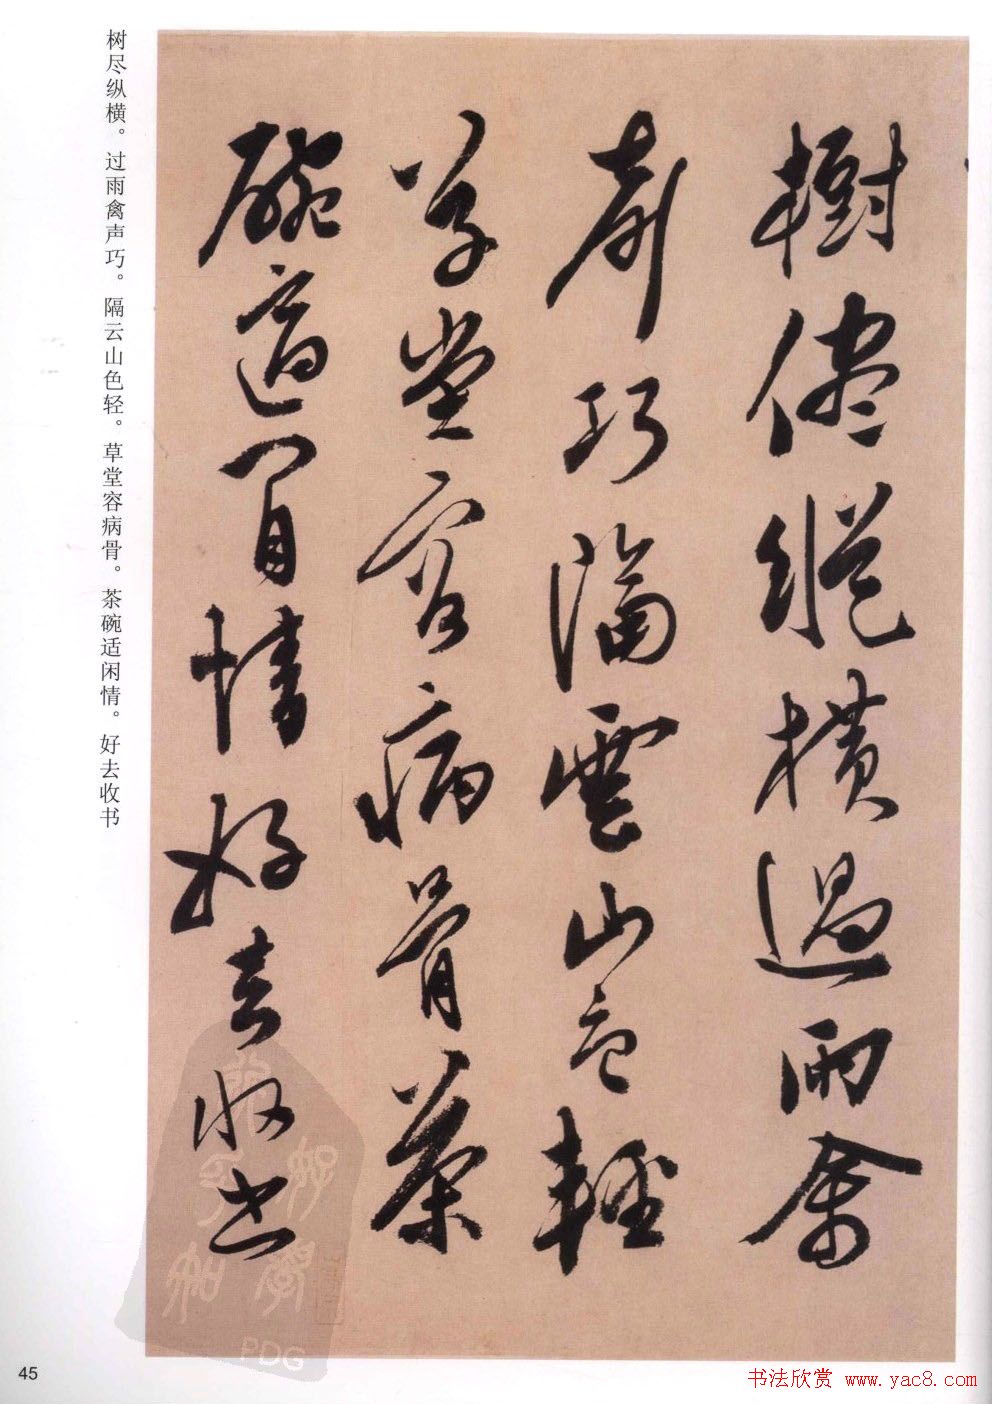 樹儘縱橫過雨禽
聲巧隔雲山色輕
草堂容病骨茶
碗適閒情好去收书
树尽纵横。过雨禽声巧。隔云山色轻。草堂容病骨。茶碗适闲情。好去收书
PDG
45
书法欣赏 www.yac8.com